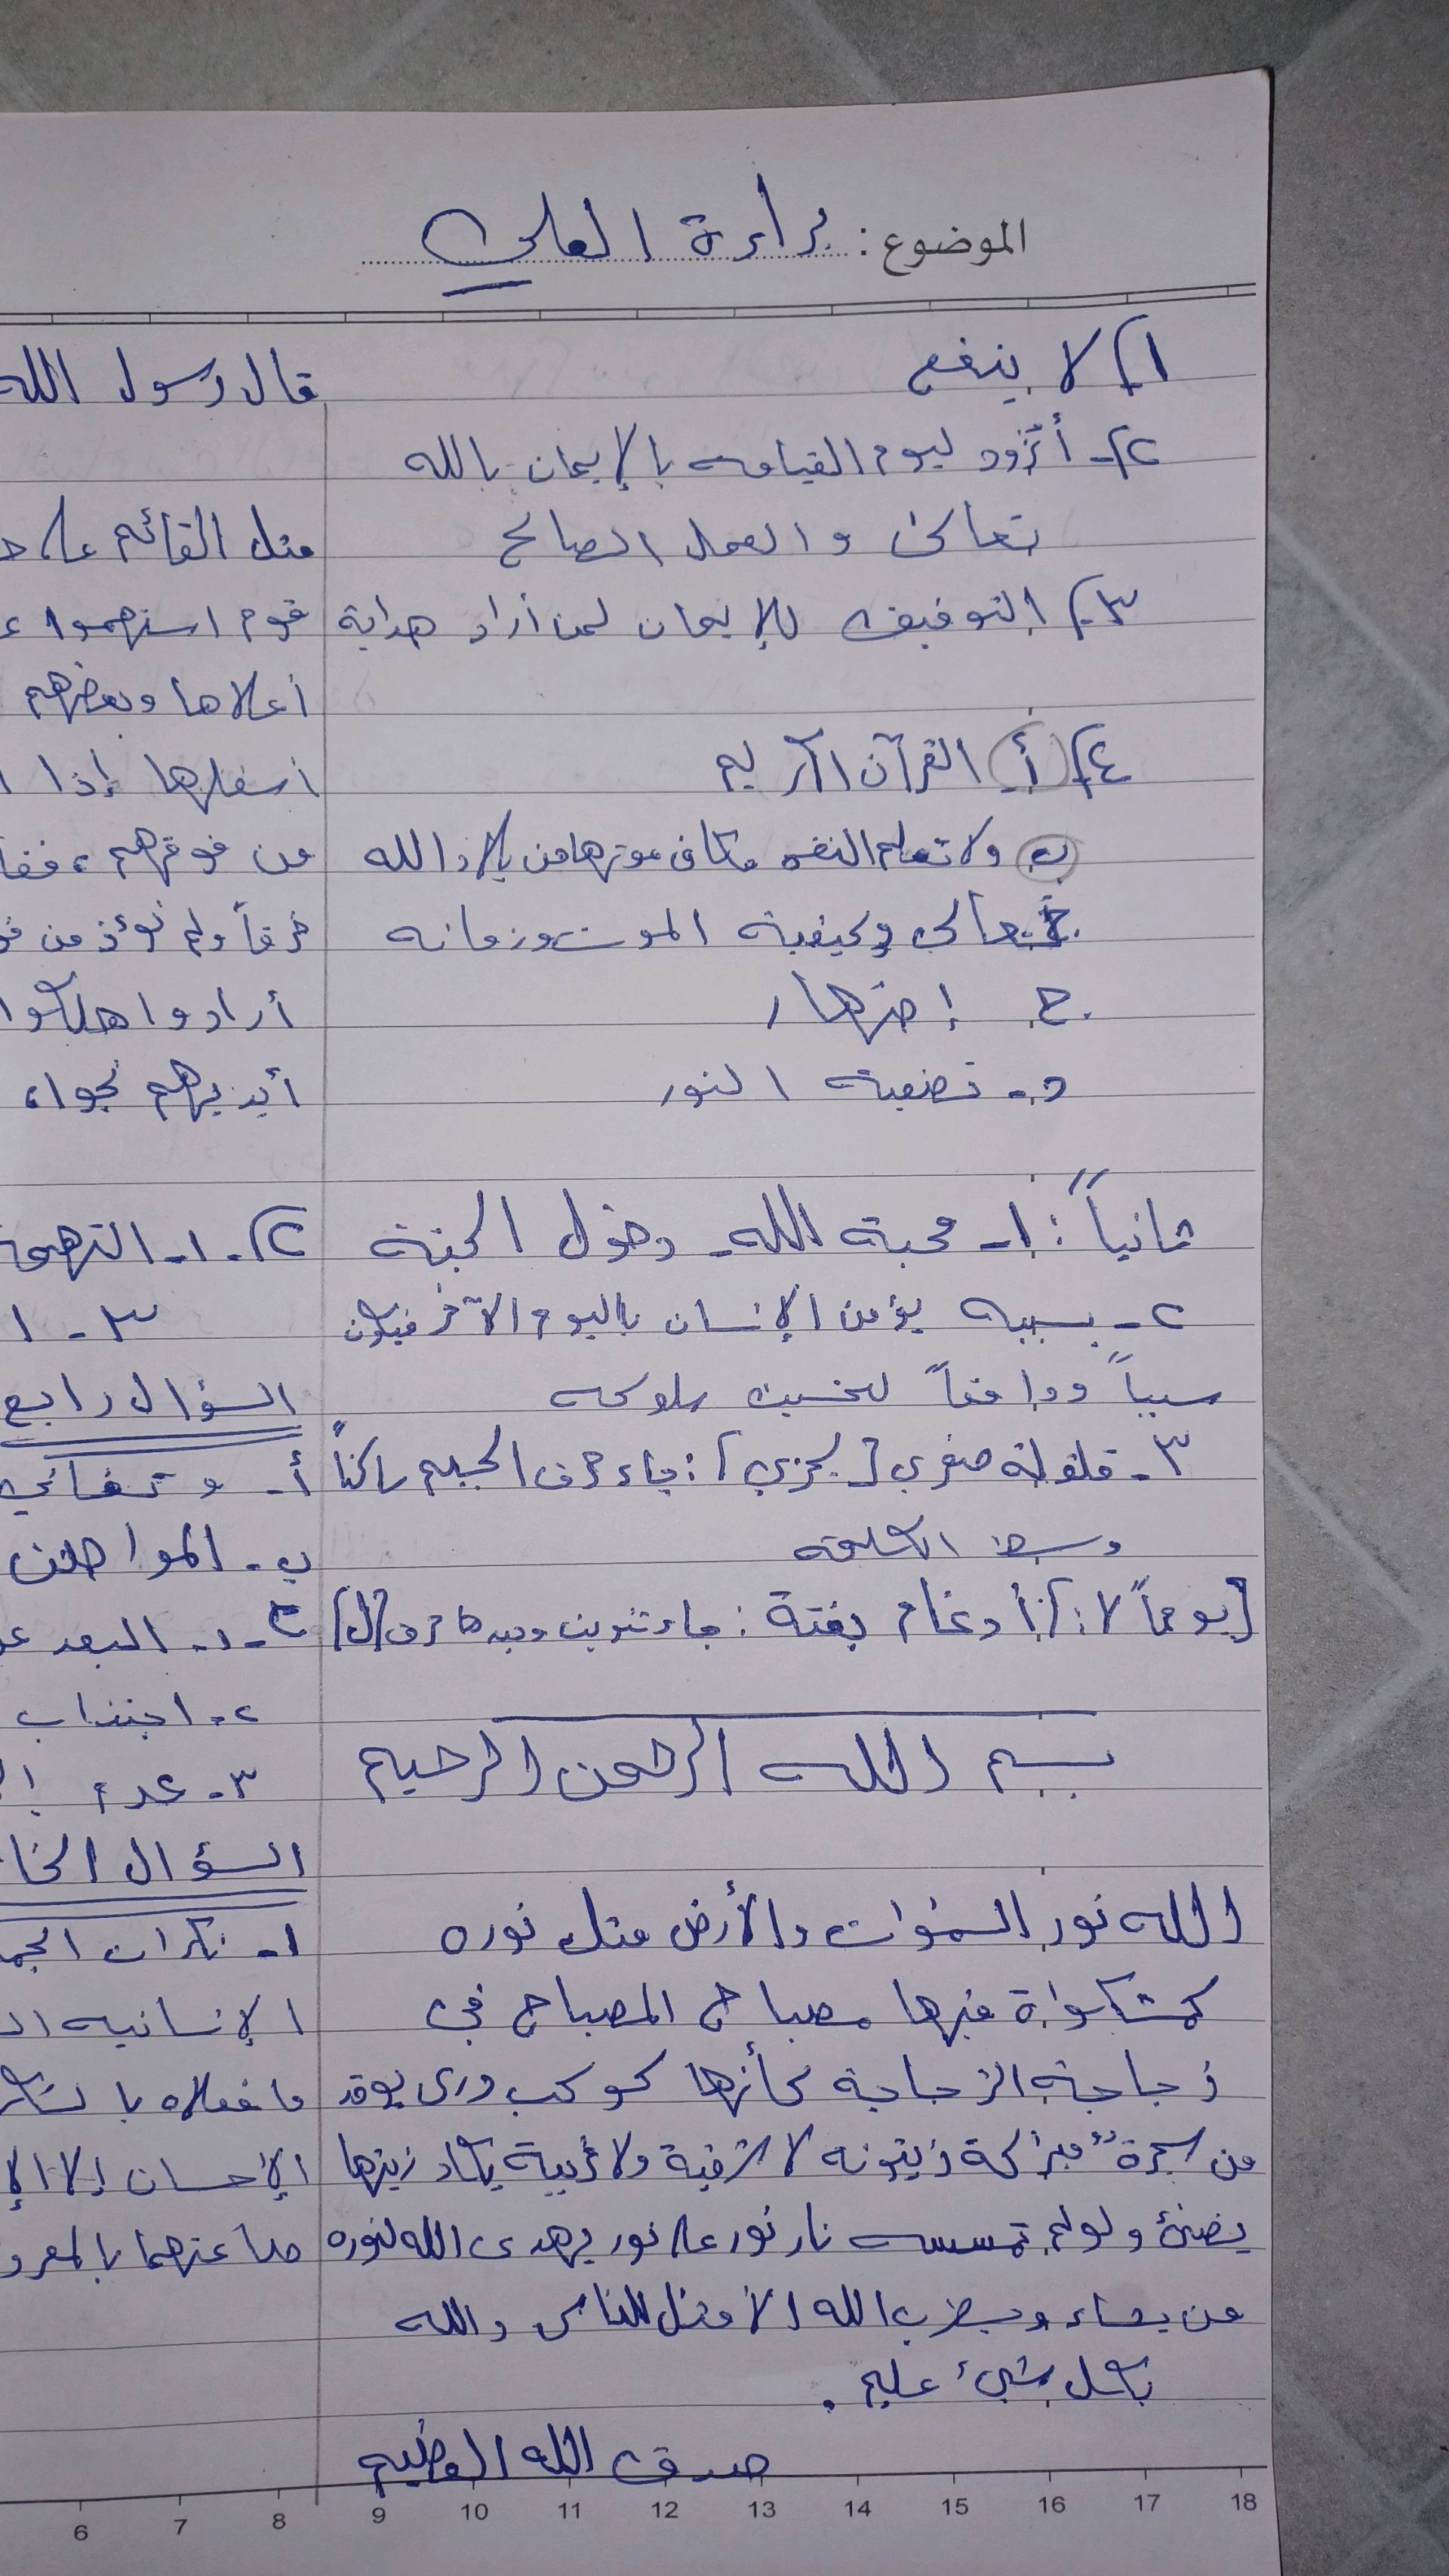 الموضوع: براءة العلي
١) لا ينفع
٢)- أتزود ليوم القيامه بالإيمان بالله
تعالى و العمل الصالح
٣) التوفيق للإيمان لمن أراد هداية
٤) أ- القرآن الكريم
ب ولا تعلم النفس مكان موتها من بلاد الله
تعالى وكيفية الموت وزمانه
ج. إضهار
د- تضعية النور
ثانياً: ١- محبة الله - دخول الجنة
٢- بسببه يؤمن الإنسان باليوم الآخر فيكون
سبباً ودافعاً لتحسين سلوكه
٣- قلقلة صغرى [يجزي]: جاء حرف الجيم ساكناً
وسط الكلمة
[يوماً لا]: أدغام بغتة: جاء تنوين وبعدها حرف [ل]
بسم الله الرحمن الرحيم
الله نور السموات والأرض مثل نوره
كمشكواة فيها مصباح المصباح في
زجاجة الزجاجة كأنها كوكب درى يوقد
من شجرة مبركة زيتونه لا شرقية ولا غربية يكاد زيتها
يضئ ولولم تمسسه نار نور على نور يهدى الله لنوره
من يشاء ويضرب الله الأمثل للناس والله
بكل شئ عليم.
صدق الله العظيم
قال رسول الله
مثل القائم على
قوم استهموا
أعلاها وبعضهم
أسفلها إذا
من فوقهم، فقا
خرقاً ولم نؤذ من فو
أرادوا هلكوا
أيديهم نجوا،
٢)-١- التهمة
٣- ا
السؤال رابع
أ- و تفاني
ب- المواطن
ج-١- البعد ع
٢- اجتناب
٣- عدم
السؤال الخا
١- نكران الجم
الإنسانيه ال
ما فعلاه بالشكر
الإحسان إلا الإ
صاعتهما بالمعرو
6 7 8 9 10 11 12 13 14 15 16 17 18